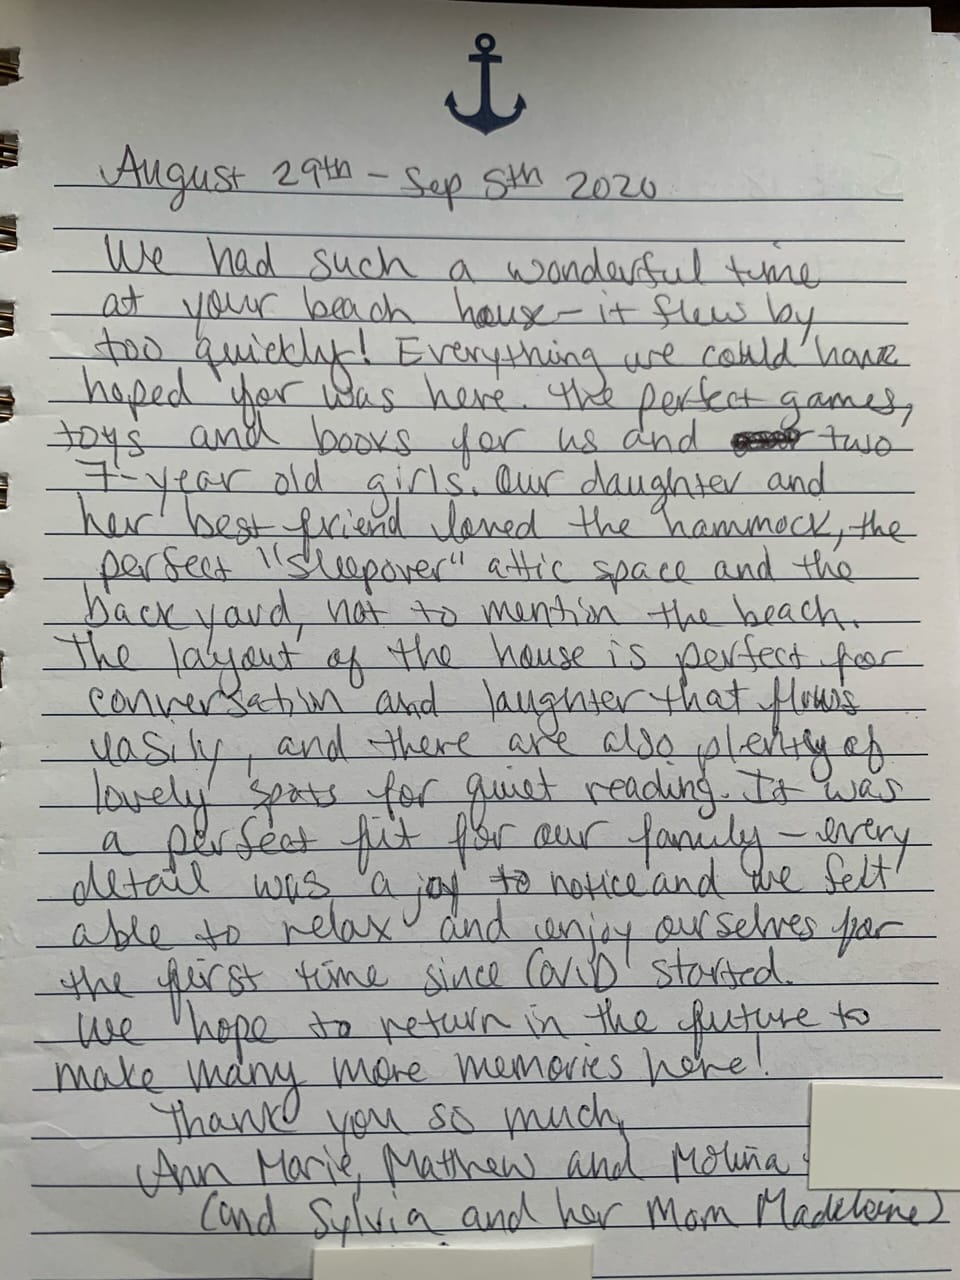 August 29th - Sep 5th 2020
We had such a wonderful time
at your beach house - it flew by
too quickly! Everything we could have
hoped for was here. The perfect games,
toys and books for us and two
7-year old girls. Our daughter and
her best friend loved the hammock, the
perfect "sleepover" attic space and the
back yard, not to mention the beach.
The layout of the house is perfect for
conversation and laughter that flows
easily, and there are also plenty of
lovely spots for quiet reading. It was
a perfect fit for our family - every
detail was a joy to notice and we felt
able to relax and enjoy ourselves for
the first time since COVID started.
We hope to return in the future to
make many more memories here!
Thank you so much,
Ann Marie, Matthew and
(and Sylvia and her Mom Madeleine)